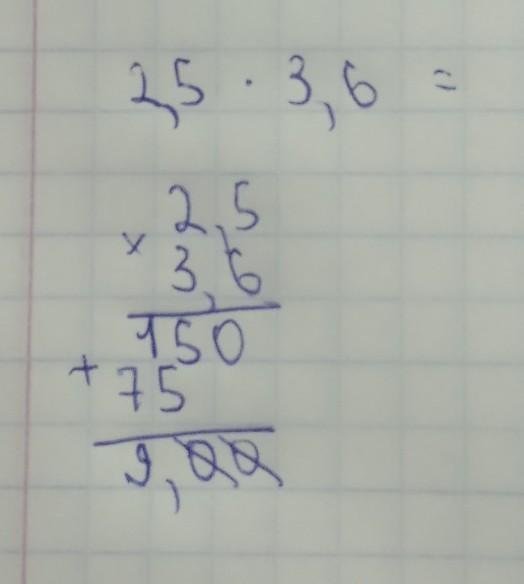 2,5 · 3,6 =
2,5
× 3,6
150
+ 75
9,00